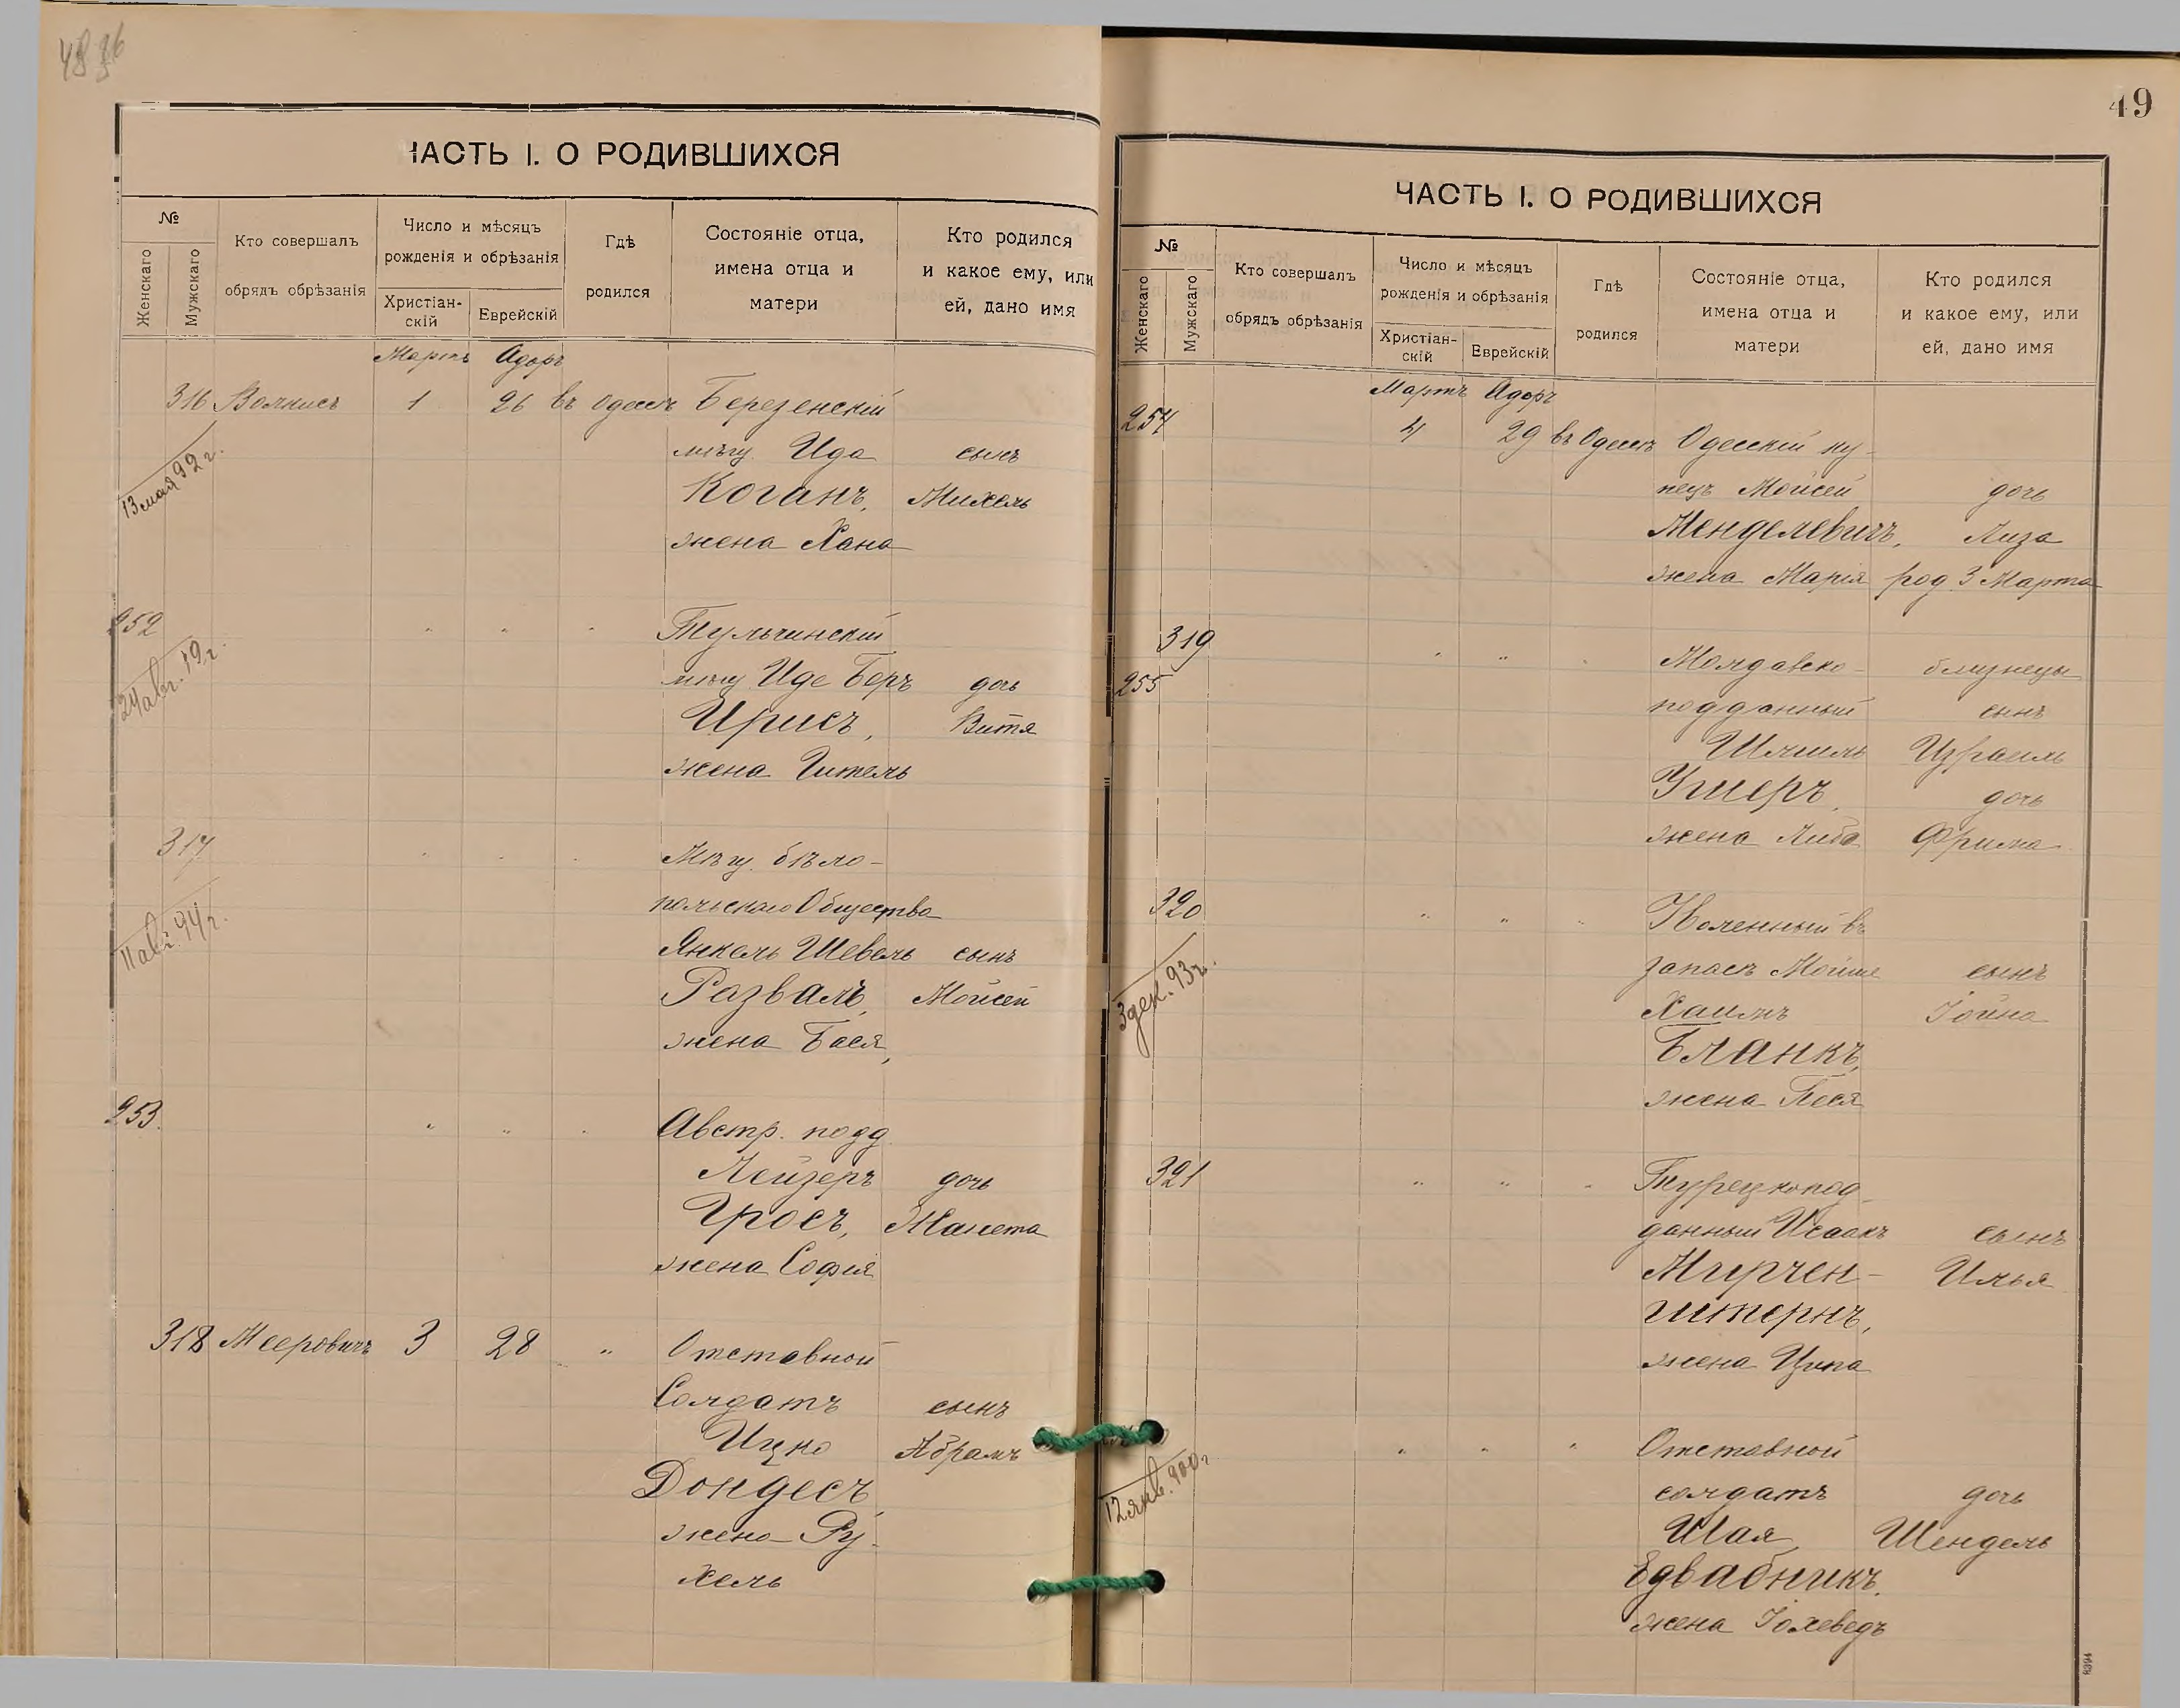 ЧАСТЬ I. О РОДИВШИХСЯ
№
Женскаго
Мужскаго
Кто совершалъ
обрядъ обрѣзанія
Число и мѣсяцъ
рожденія и обрѣзанія
Христіан-
скій
Еврейскій
Гдѣ
родился
Состояніе отца,
имена отца и
матери
Кто родился
и какое ему, или
ей, дано имя
Мартъ Адоръ
316 1 26 въ Одессѣ Березенскій
мѣщ. Ида сынъ
Коганъ, Михель
жена Хана
13 мая 92 г.
252 " " " Тульчинскій
мѣщ Иде Беръ дочь
Ирисъ, Витя
жена Гитель
24 авг. 19 г.
317 " " " Мѣщ. бѣло-
польскаго Общества
Янкель Шевель сынъ
Развалъ, Мойсей
жена Бася,
11 авг. 94 г.
253. " " " Австр. подд
Лейзеръ дочь
Гросъ, Жанета
жена Софія
318 Мееровичъ 3 28 " Отставной
Солдатъ сынъ
Ицко Абрамъ
Дондесъ,
жена Ру-
хель
49
ЧАСТЬ I. О РОДИВШИХСЯ
№
Женскаго
Мужскаго
Кто совершалъ
обрядъ обрѣзанія
Число и мѣсяцъ
рожденія и обрѣзанія
Христіан-
скій
Еврейскій
Гдѣ
родился
Состояніе отца,
имена отца и
матери
Кто родился
и какое ему, или
ей, дано имя
Мартъ Адоръ
254 4 29 въ Одессѣ Одесскій ку-
пецъ Мойсей дочь
Менделевичъ, Лиза
жена Марія род. 3 Марта
319 " " " Молдавско- близнецы
255 подданный сынъ
Шмиль Израиль
Ушеръ, дочь
жена Либа Фрима
320 " " " Уволенный въ
запасъ Мойше сынъ
Хаимъ Іойна
Бланкъ,
жена Песя
3 дек. 93 г.
321 " " " Турецкопод-
данный Исаакъ сынъ
Мирчен- Илья
штернъ,
жена Ципа
" " " Отставной
солдатъ дочь
Шая Шендель
Едвабникъ,
жена Іохеведъ
12 янв. 900 г.
8394